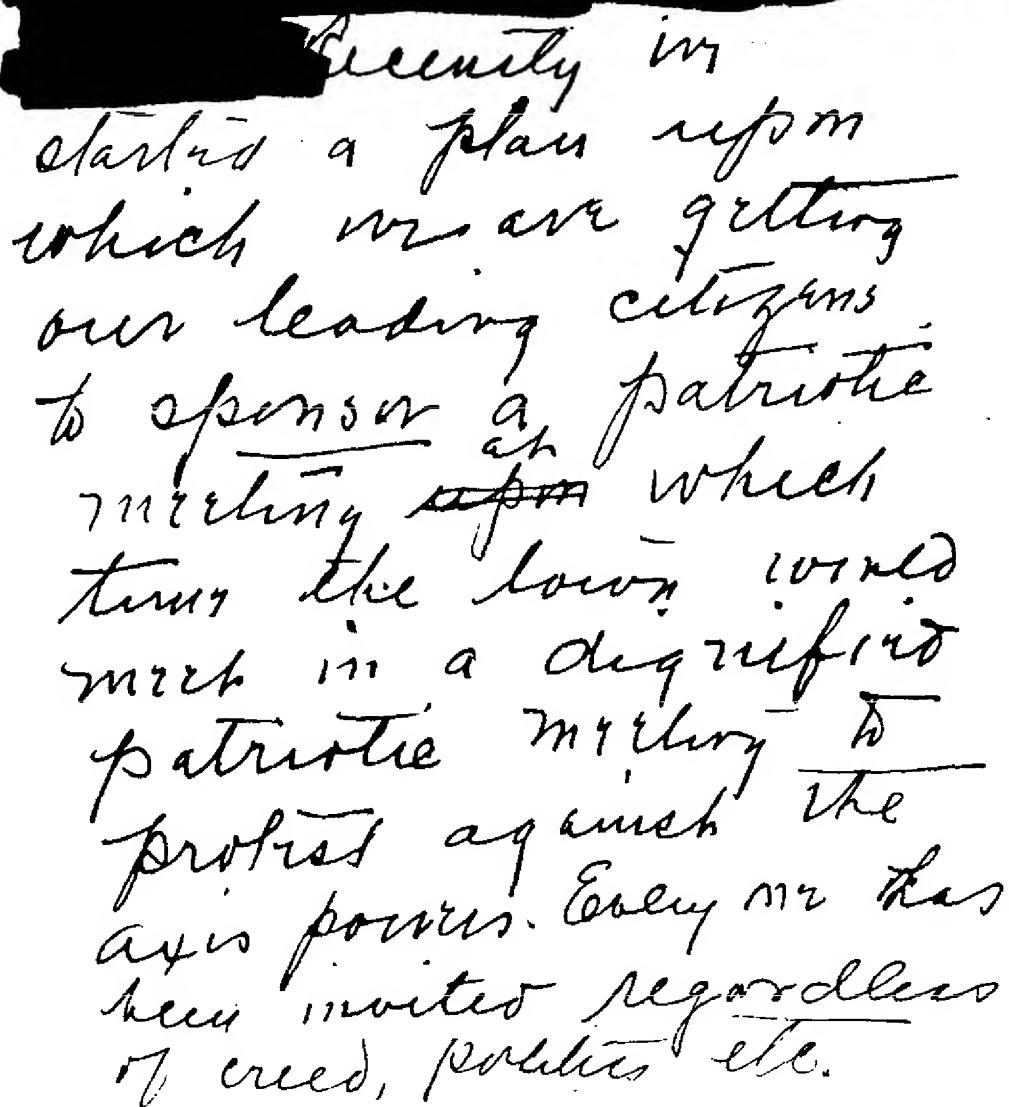 Recently
started a plan upon
which we are getting
our leading citizens
to sponsor a patriotic
meeting at upon which
time the town would
meet in a dignified
patriotic meeting to
protest against the
axis powers. Every one has
been invited regardless
of creed, politics etc.